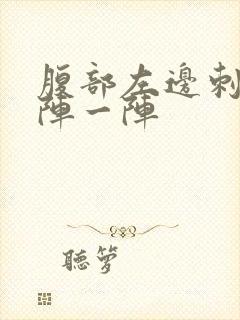 腹部左邊刺
陣一陣
聽夢